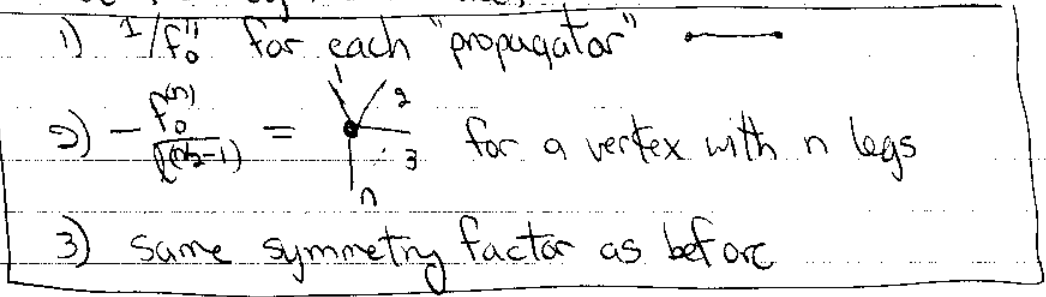 1) 1/f₀'' for each "propagator"
2) - f₀⁽ⁿ⁾ / (n/2-1) = 1 2 3 n for a vertex with n legs
3) same symmetry factor as before